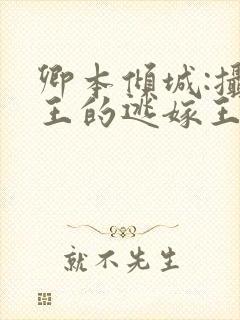 卿本倾城:攝
王的逃嫁王
就不先生